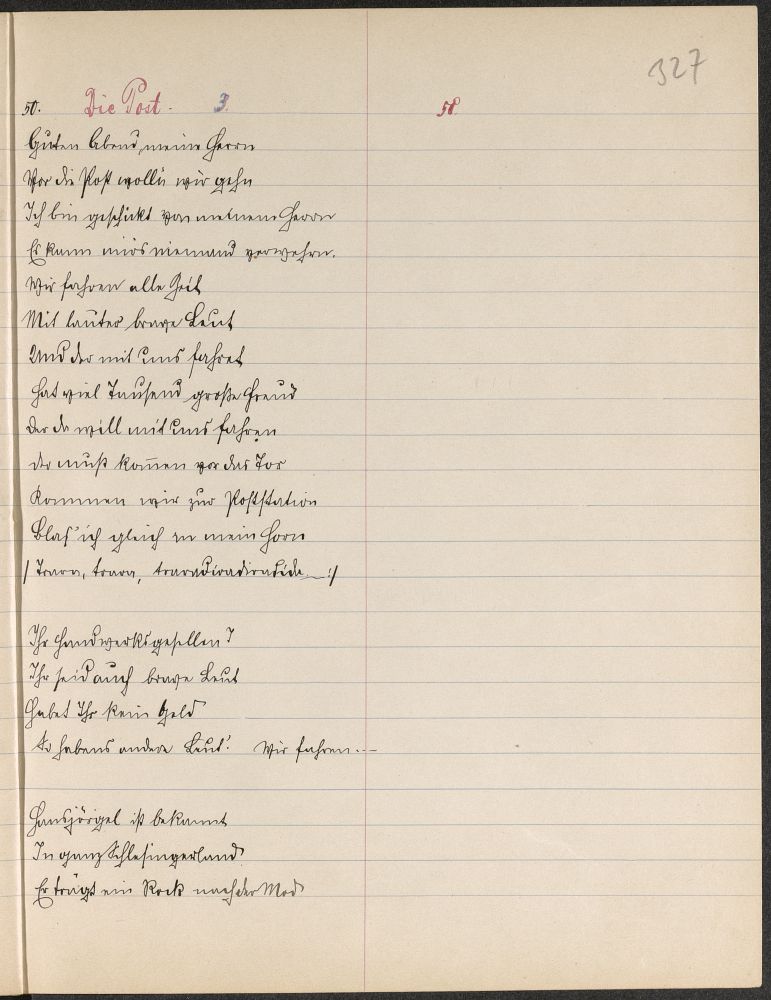 327
50. Die Post. 3. 58.
Guten Abend, meine Herrn
Vor die Post wolln wir gehn
Ich bin geschickt von meinem Herrn
Es kann mirs niemand verwehrn.
Wir fahren alle Zeit
Mit lauter brave Leut
Und der mit uns fahret
Hat viel Tausend große Freud
Der da will mit uns fahren
der muß kom̄en vor das Tor
Kommen wir zur Poststation
Blas' ich gleich in mein Horn
/ Trara, trara, traradiradiradida :/
Ihr Handwerksgesellen!
Ihr seid auch brave Leut
Habet Ihr kein Geld
So habens andere Leut! Wir fahren.--
Hansjörgel ist bekannt
In ganz Schlesingerland
Er trägt ein Rock nach der Mod